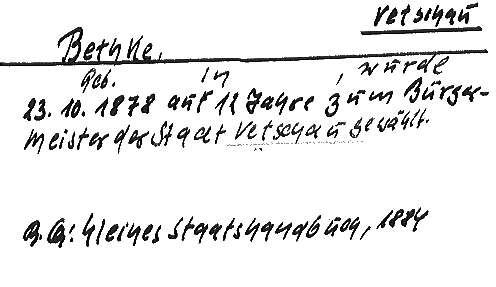 Vetschau
Bethke,
geb. in , wurde
23. 10. 1878 auf 12 Jahre zum Bürger-
meister der Stadt Vetschau gewählt.
Kleines Staatshandbuch, 1884